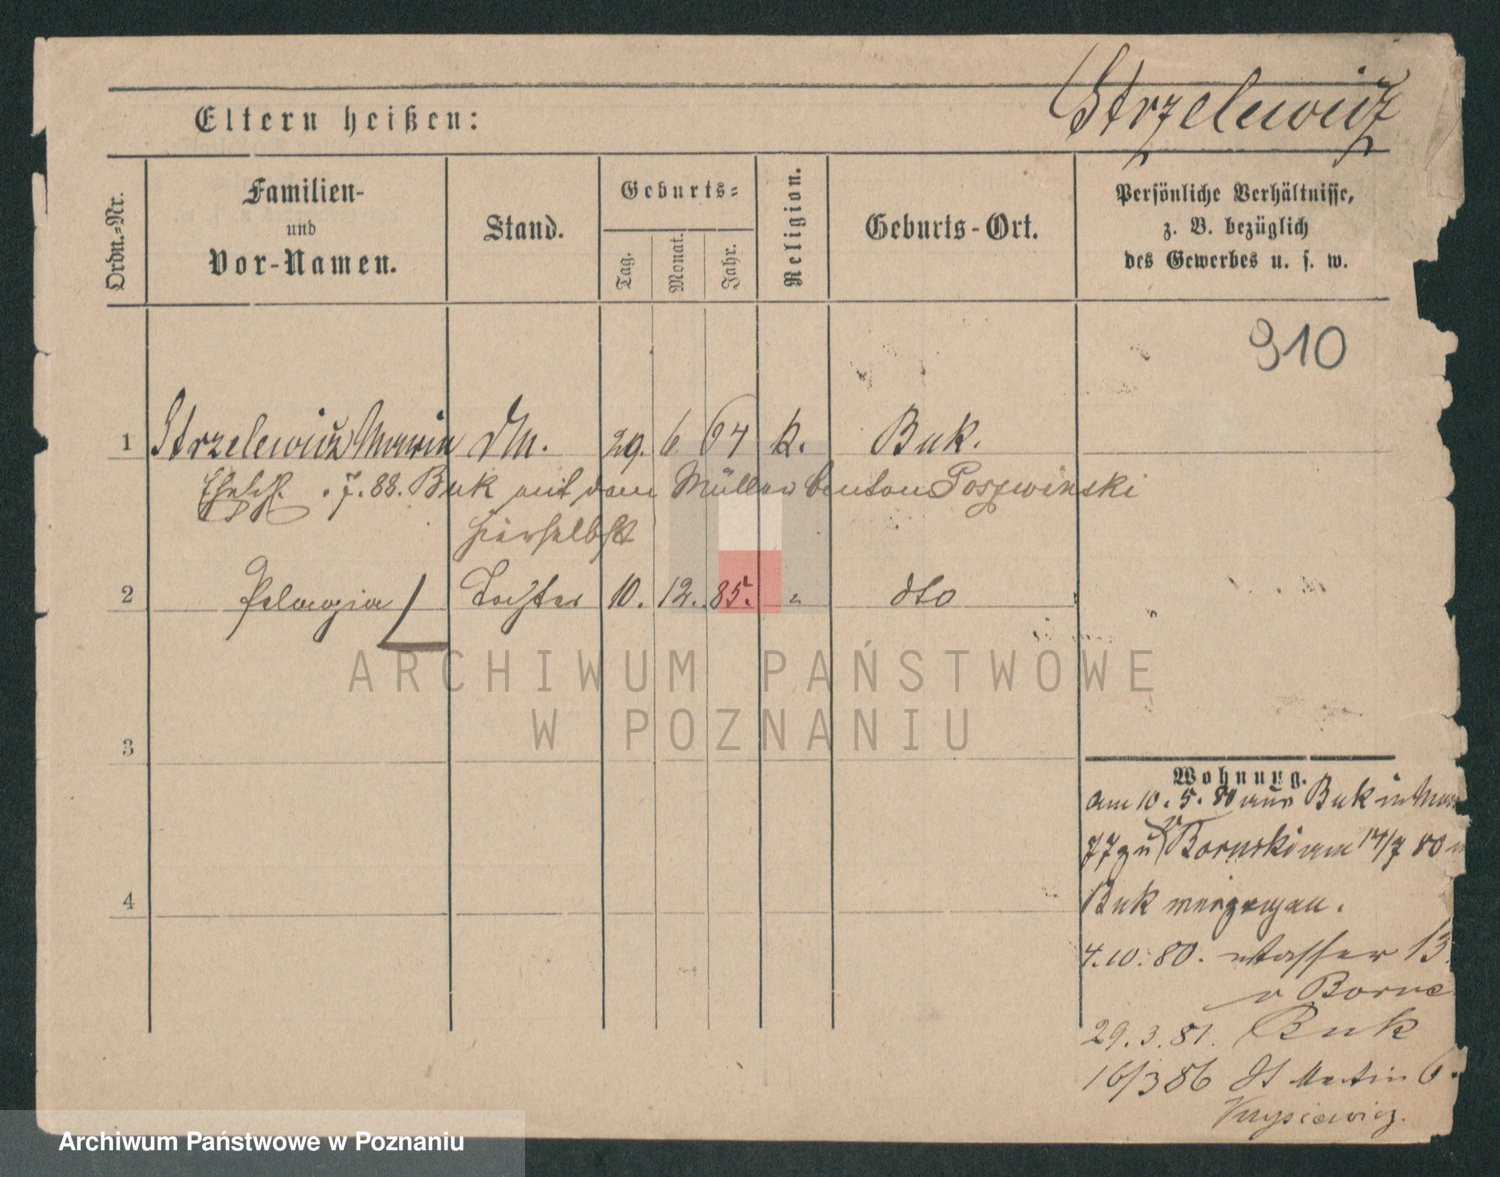 Strzelewicz
Eltern heißen:
Ordn.-Nr.
Familien-
und
Vor-Namen.
Stand.
Geburts-
Tag.
Monat.
Jahr.
Religion.
Geburts-Ort.
Persönliche Verhältnisse,
z. B. bezüglich
des Gewerbes u. s. w.
910
1 Strzelewicz Maria DM. 29. 6. 64 k. Buk.
7. 88. Buk mit dem Müller
hierselbst
2 Pelagia Tochter 10. 12. 85. " dto
ARCHIWUM PAŃSTWOWE
W POZNANIU
3
Wohnung.
am 10. 5. 80 aus Buk in
77 zu 17/7 80
4
Buk
4. 10. 80. Wasser 13
v Borne
29. 3. 81. Buk
16/3 86 St Martin 6.
Archiwum Państwowe w Poznaniu